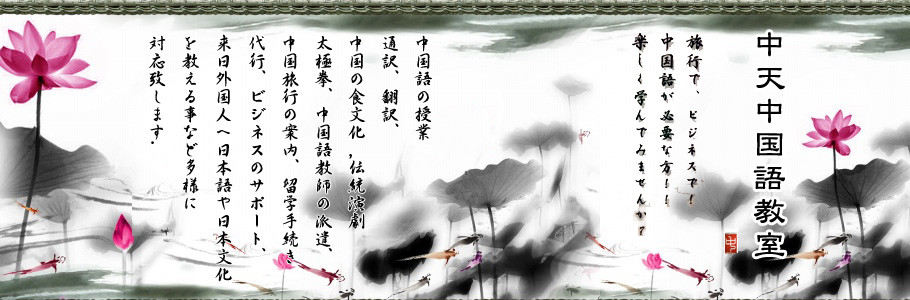 中天中国語教室
旅行で、ビジネスで!
中国語が必要な方!!
楽しく学んでみませんか?
中国語の授業
通訳、翻訳、
中国の食文化,伝統演劇
太極拳、中国語教師の派遣、
中国旅行の案内、留学手続き
代行、ビジネスのサポート、
来日外国人へ日本語や日本文化
を教える事など多様に
対応致します.